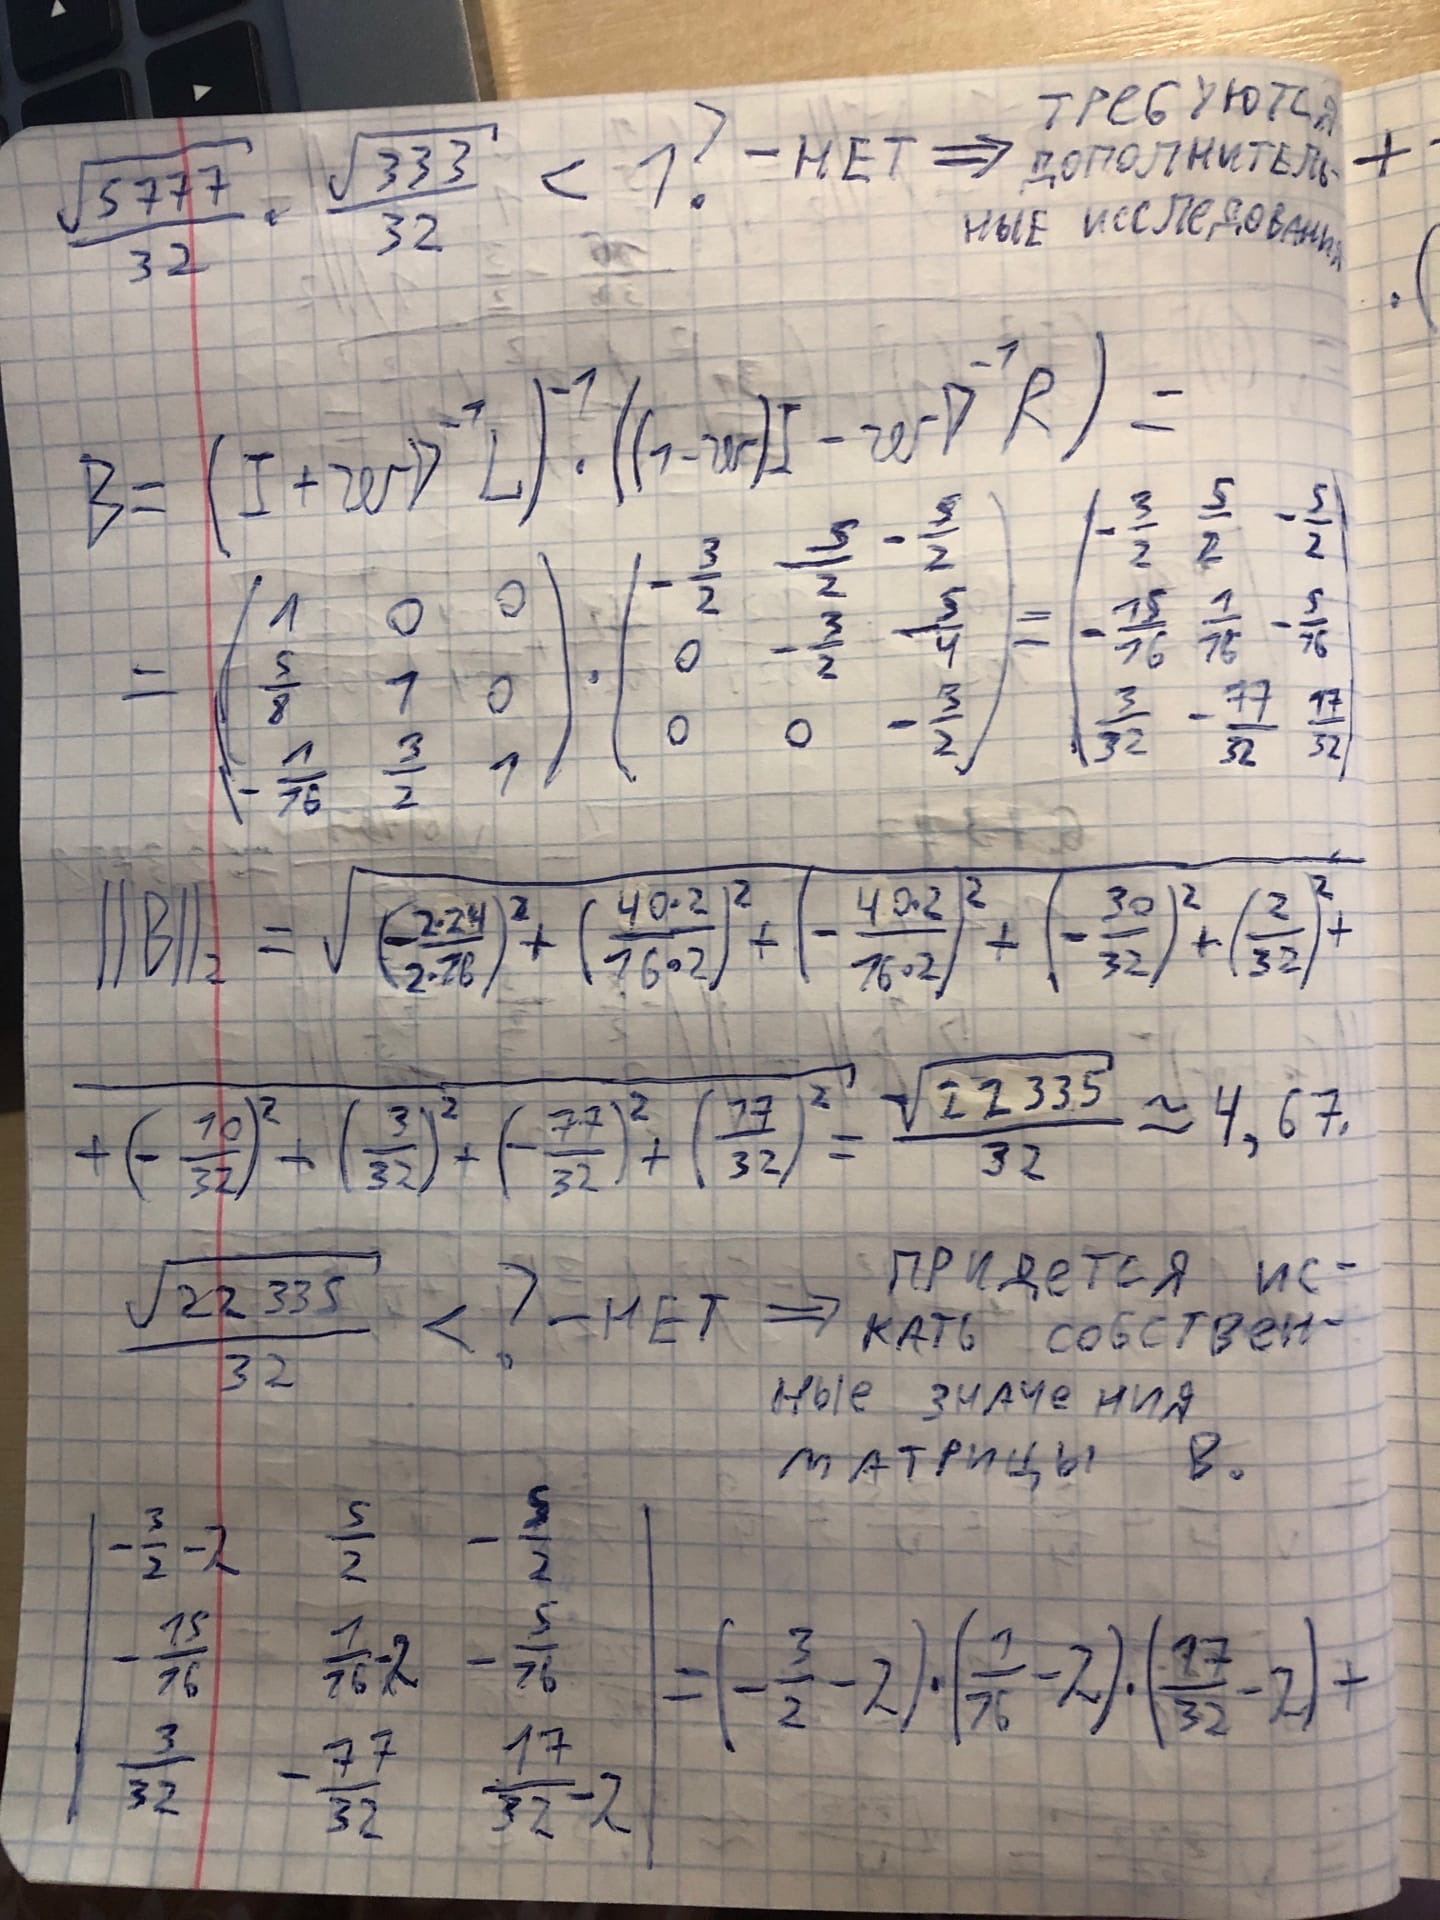 √5777/32 · √333/32 < 1? – НЕТ ⇒ ТРЕБУЮТСЯ
ДОПОЛНИТЕЛЬ-
НЫЕ ИССЛЕДОВАНИЯ
B = (I + wD⁻¹L)⁻¹ · ((1-w)I - wD⁻¹R) =
= (1 0 0; 5/8 1 0; -1/16 3/2 1) · (-3/2 5/2 -5/2; 0 -3/2 5/4; 0 0 -3/2) = (-3/2 5/2 -5/2; -15/16 1/16 -5/16; 3/32 -77/32 17/32)
||B||₂ = √((-2·24/2·16)² + (40·2/16·2)² + (-40·2/16·2)² + (-30/32)² + (2/32)² +
+ (-10/32)² + (3/32)² + (-77/32)² + (17/32)²) = √22335/32 ≈ 4,67.
√22335/32 < ? – НЕТ ⇒ ПРИДЕТСЯ ИС-
КАТЬ СОБСТВЕН-
НЫЕ ЗНАЧЕНИЯ
МАТРИЦЫ B.
|-3/2-λ 5/2 -5/2; -15/16 1/16-λ -5/16; 3/32 -77/32 17/32-λ| = (-3/2-λ)·(1/16-λ)·(17/32-λ)+